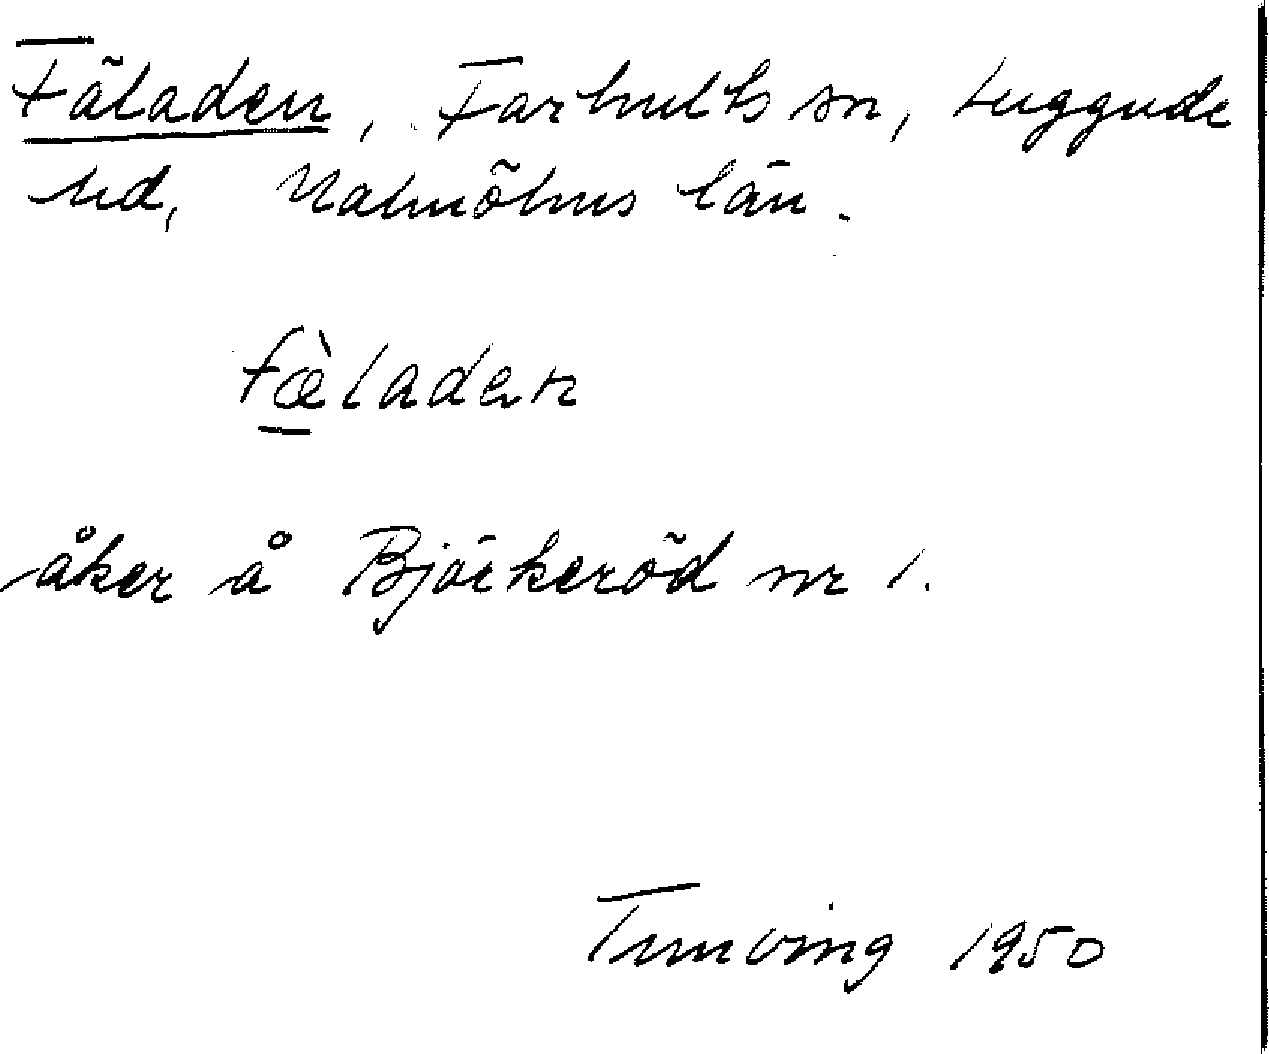 Fäladen, Farhults sn, Luggude
hd, Malmöhus län.
fæ̀laden
åker å Björkeröd nr 1.
Tunving 1950